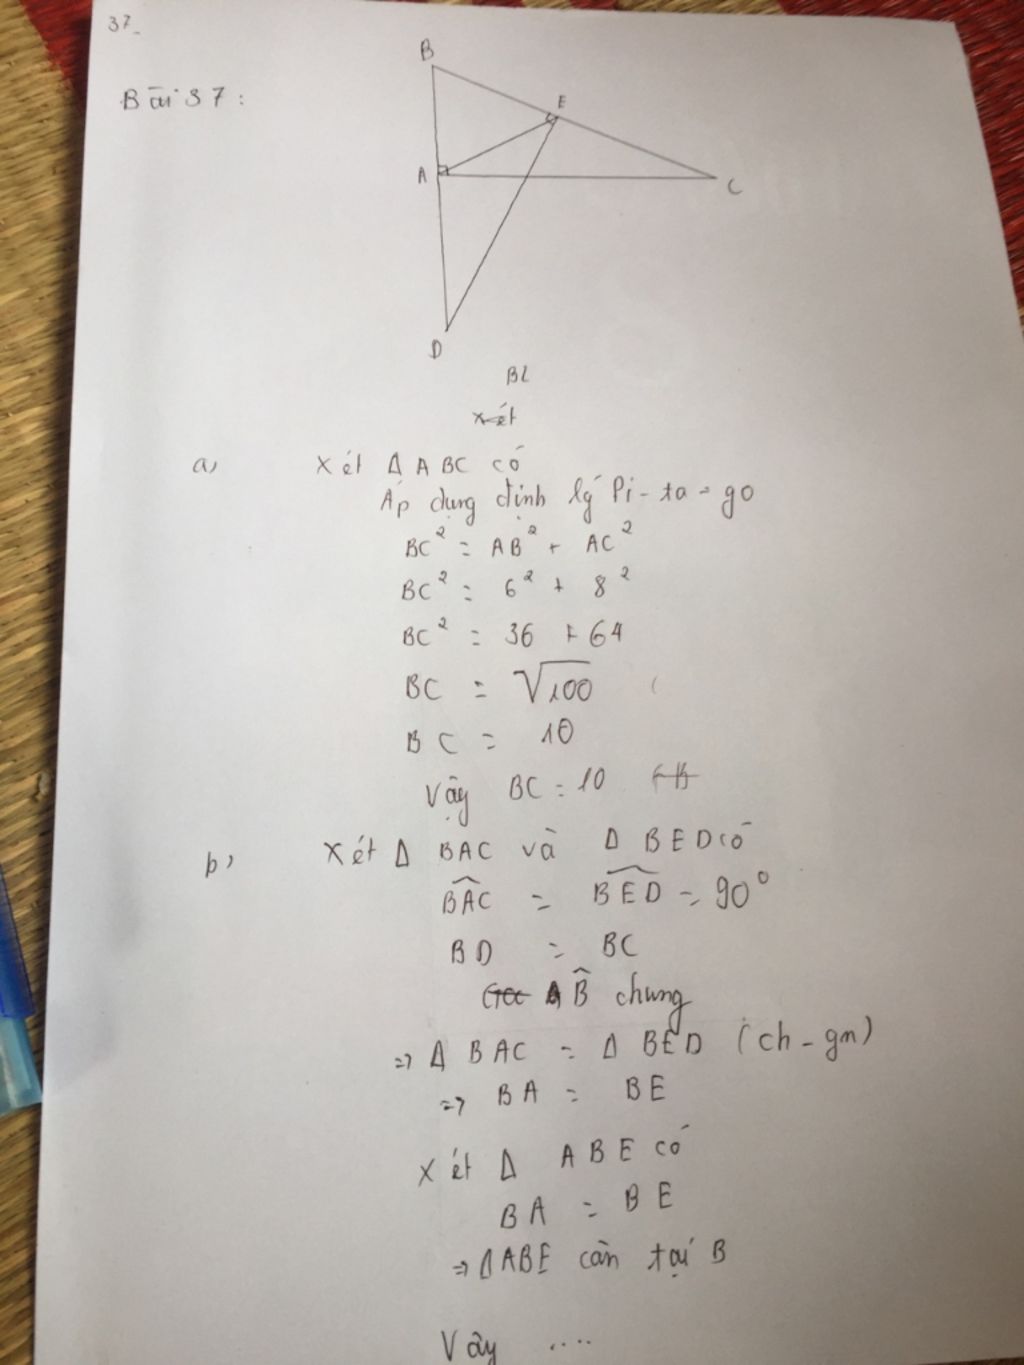 37.
Bài 37:
B
E
A
C
D
BL
xét
a, Xét Δ ABC có
Áp dụng định lý Pi-ta-go
BC² = AB² + AC²
BC² = 6² + 8²
BC² = 36 + 64
BC = √100
BC = 10
Vậy BC = 10
b, Xét Δ BAC và Δ BED có
BAC = BED = 90°
BD = BC
Góc B chung
=> Δ BAC = Δ BED (ch - gn)
=> BA = BE
Xét Δ ABE có
BA = BE
=> ΔABE cân tại B
Vậy ....